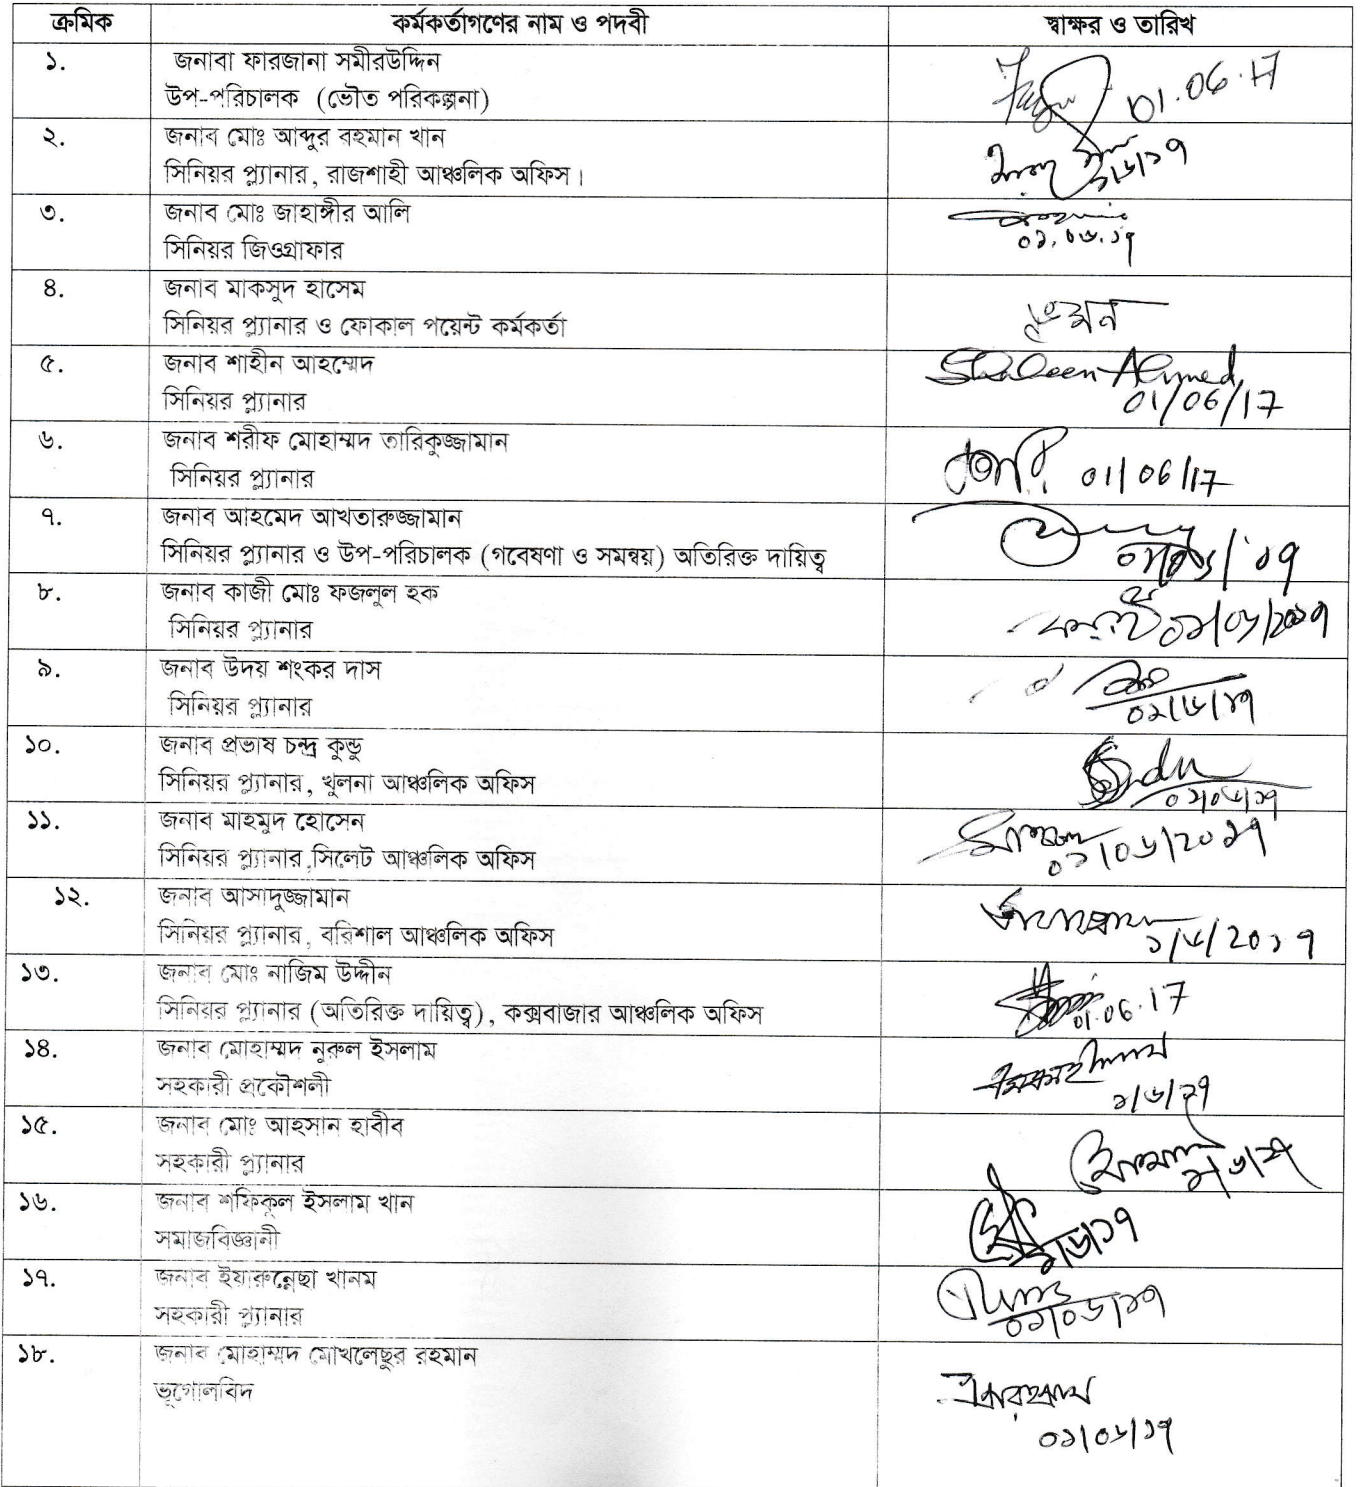 ক্রমিক কর্মকর্তাগণের নাম ও পদবী স্বাক্ষর ও তারিখ
১. জনাবা ফারজানা সমীরউদ্দিন
উপ-পরিচালক (ভৌত পরিকল্পনা)
01.06.17
২. জনাব মোঃ আব্দুর রহমান খান
সিনিয়র প্ল্যানার, রাজশাহী আঞ্চলিক অফিস।
৩. জনাব মোঃ জাহাঙ্গীর আলি
সিনিয়র জিওগ্রাফার
০১.০৬.১৭
৪. জনাব মাকসুদ হাসেম
সিনিয়র প্ল্যানার ও ফোকাল পয়েন্ট কর্মকর্তা
৫. জনাব শাহীন আহম্মেদ
সিনিয়র প্ল্যানার
Shaheen Ahmed
01/06/17
৬. জনাব শরীফ মোহাম্মদ তারিকুজ্জামান
সিনিয়র প্ল্যানার
01/06/17
৭. জনাব আহমেদ আখতারুজ্জামান
সিনিয়র প্ল্যানার ও উপ-পরিচালক (গবেষণা ও সমন্বয়) অতিরিক্ত দায়িত্ব
৮. জনাব কাজী মোঃ ফজলুল হক
সিনিয়র প্ল্যানার
০১/০৬/২০১৭
৯. জনাব উদয় শংকর দাস
সিনিয়র প্ল্যানার
০১/৬/১৭
১০. জনাব প্রভাষ চন্দ্র কুন্ডু
সিনিয়র প্ল্যানার, খুলনা আঞ্চলিক অফিস
০১/০৬/১৭
১১. জনাব মাহমুদ হোসেন
সিনিয়র প্ল্যানার,সিলেট আঞ্চলিক অফিস
০১/০৬/২০১৭
১২. জনাব আসাদুজ্জামান
সিনিয়র প্ল্যানার, বরিশাল আঞ্চলিক অফিস
১/৬/২০১৭
১৩. জনাব মোঃ নাজিম উদ্দীন
সিনিয়র প্ল্যানার (অতিরিক্ত দায়িত্ব), কক্সবাজার আঞ্চলিক অফিস
01.06.17
১৪. জনাব মোহাম্মদ নুরুল ইসলাম
সহকারী প্রকৌশলী
১/৬/১৭
১৫. জনাব মোঃ আহসান হাবীব
সহকারী প্ল্যানার
১/৬/১৭
১৬. জনাব শফিকূল ইসলাম খান
সমাজবিজ্ঞানী
১/৬/১৭
১৭. জনাব ইয়ারুন্নেছা খানম
সহকারী প্ল্যানার
০১/০৬/১৭
১৮. জনাব মোহাম্মদ মোখলেছুর রহমান
ভূগোলবিদ
০১/০৬/১৭